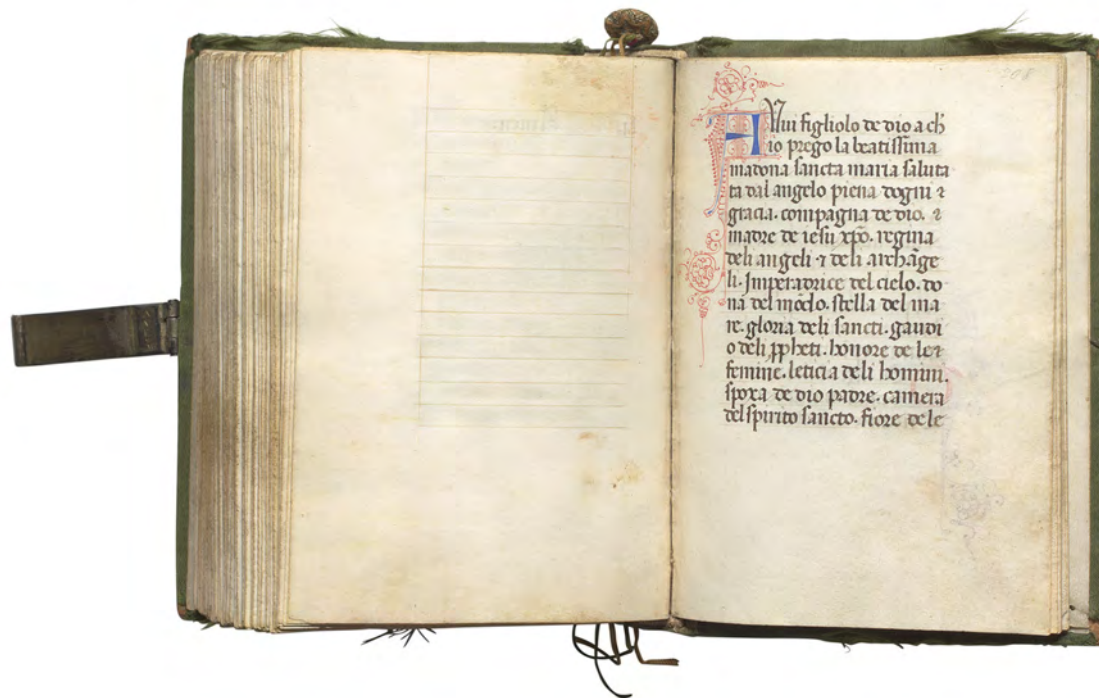 figliolo de dio a ch
io prego la beatissima
madona sancta maria saluta
ta dal angelo piena dogni ⁊
gracia. compagna de dio. ⁊
madre de iesu xp̄o. regina
deli angeli ⁊ deli archāge
li. Imperadrice del cielo. do
na del mōdo. stella del ma
re. gloria deli sancti. gaudi
o deli ꝓpheti. honore de le ⁊
femine. leticia deli homini.
spoxa de dio padre. camera
del spirito sancto. fiore de le